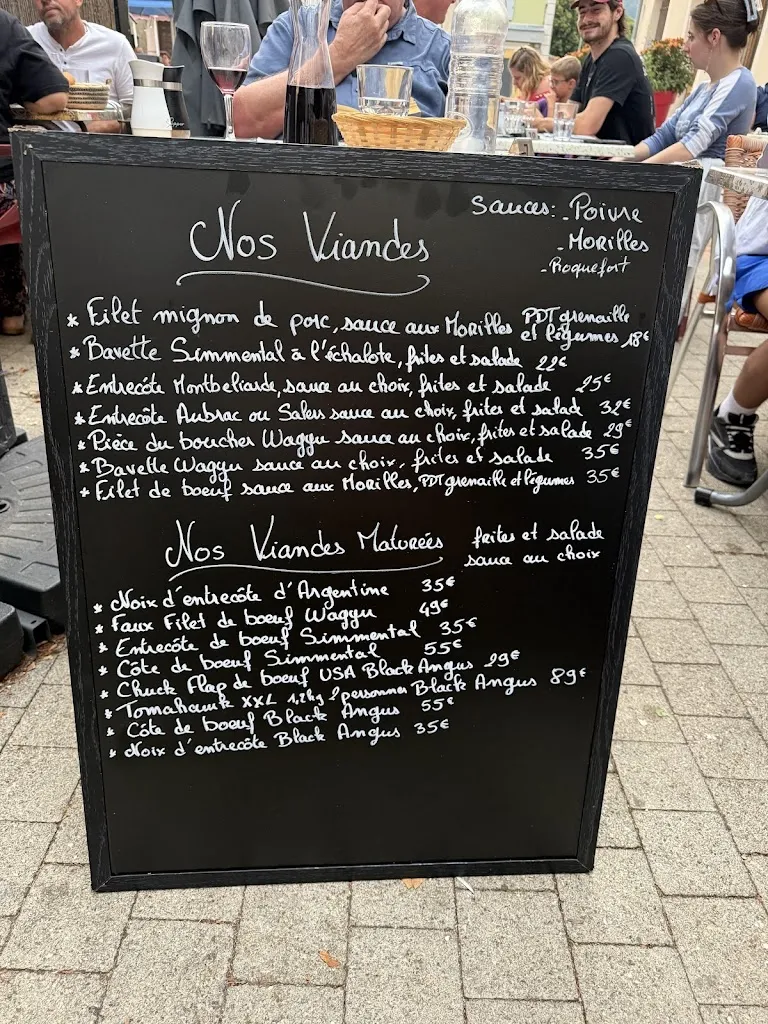 Nos Viandes
Sauces: - Poivre
- Morilles
- Roquefort
* Filet mignon de porc, sauce aux Morilles PDT grenaille
et légumes 18€
* Bavette Simmental à l'échalote, frites et salade 22€
* Entrecôte Montbeliarde, sauce au choix, frites et salade 25€
* Entrecôte Aubrac ou Salers sauce au choix, frites et salad 32€
* Pièce du boucher Wagyu sauce au choix, frites et salade 29€
* Bavette Wagyu sauce au choix, frites et salade 35€
* Filet de boeuf sauce aux Morilles, PDT grenaille et légumes 35€
Nos Viandes Maturées
frites et salade
sauce au choix
* Noix d'entrecôte d'Argentine 35€
* Faux Filet de boeuf Wagyu 49€
* Entrecôte de boeuf Simmental 35€
* Côte de boeuf Simmental 55€
* Chuck Flap de boeuf USA Black Angus 29€
* Tomahawk XXL 1,2kg 2 personnes Black Angus 89€
* Côte de boeuf Black Angus 55€
* Noix d'entrecôte Black Angus 35€